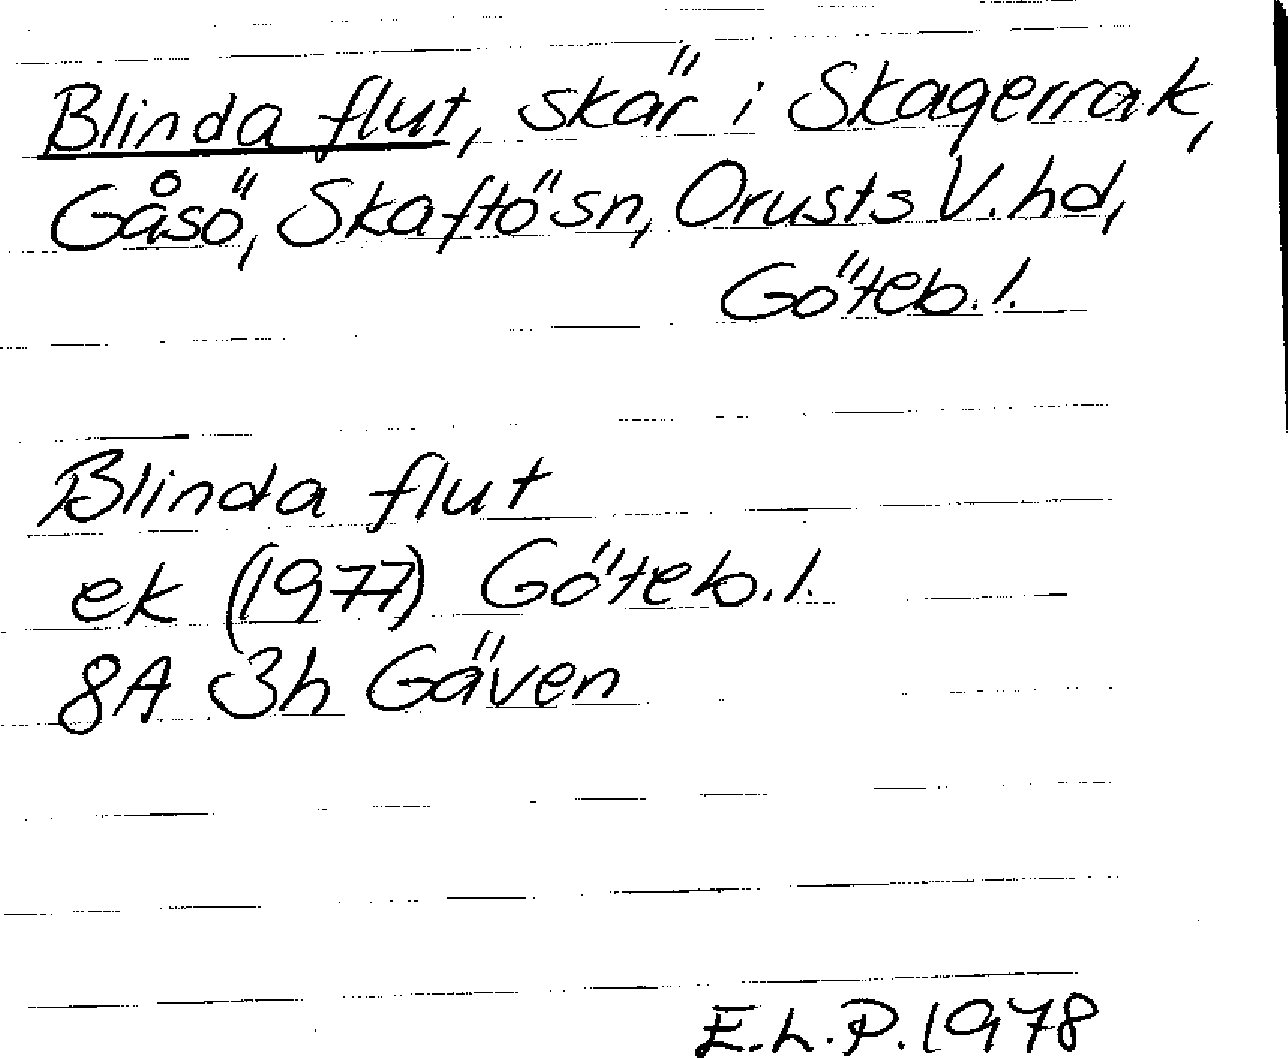 Blinda flut, skär i Skagerrak,
Gåsö, Skaftö sn, Orusts V. hd,
Göteb. l.
Blinda flut
ek (1977) Göteb. l.
8A 3h Gäven
E.L.P. 1978